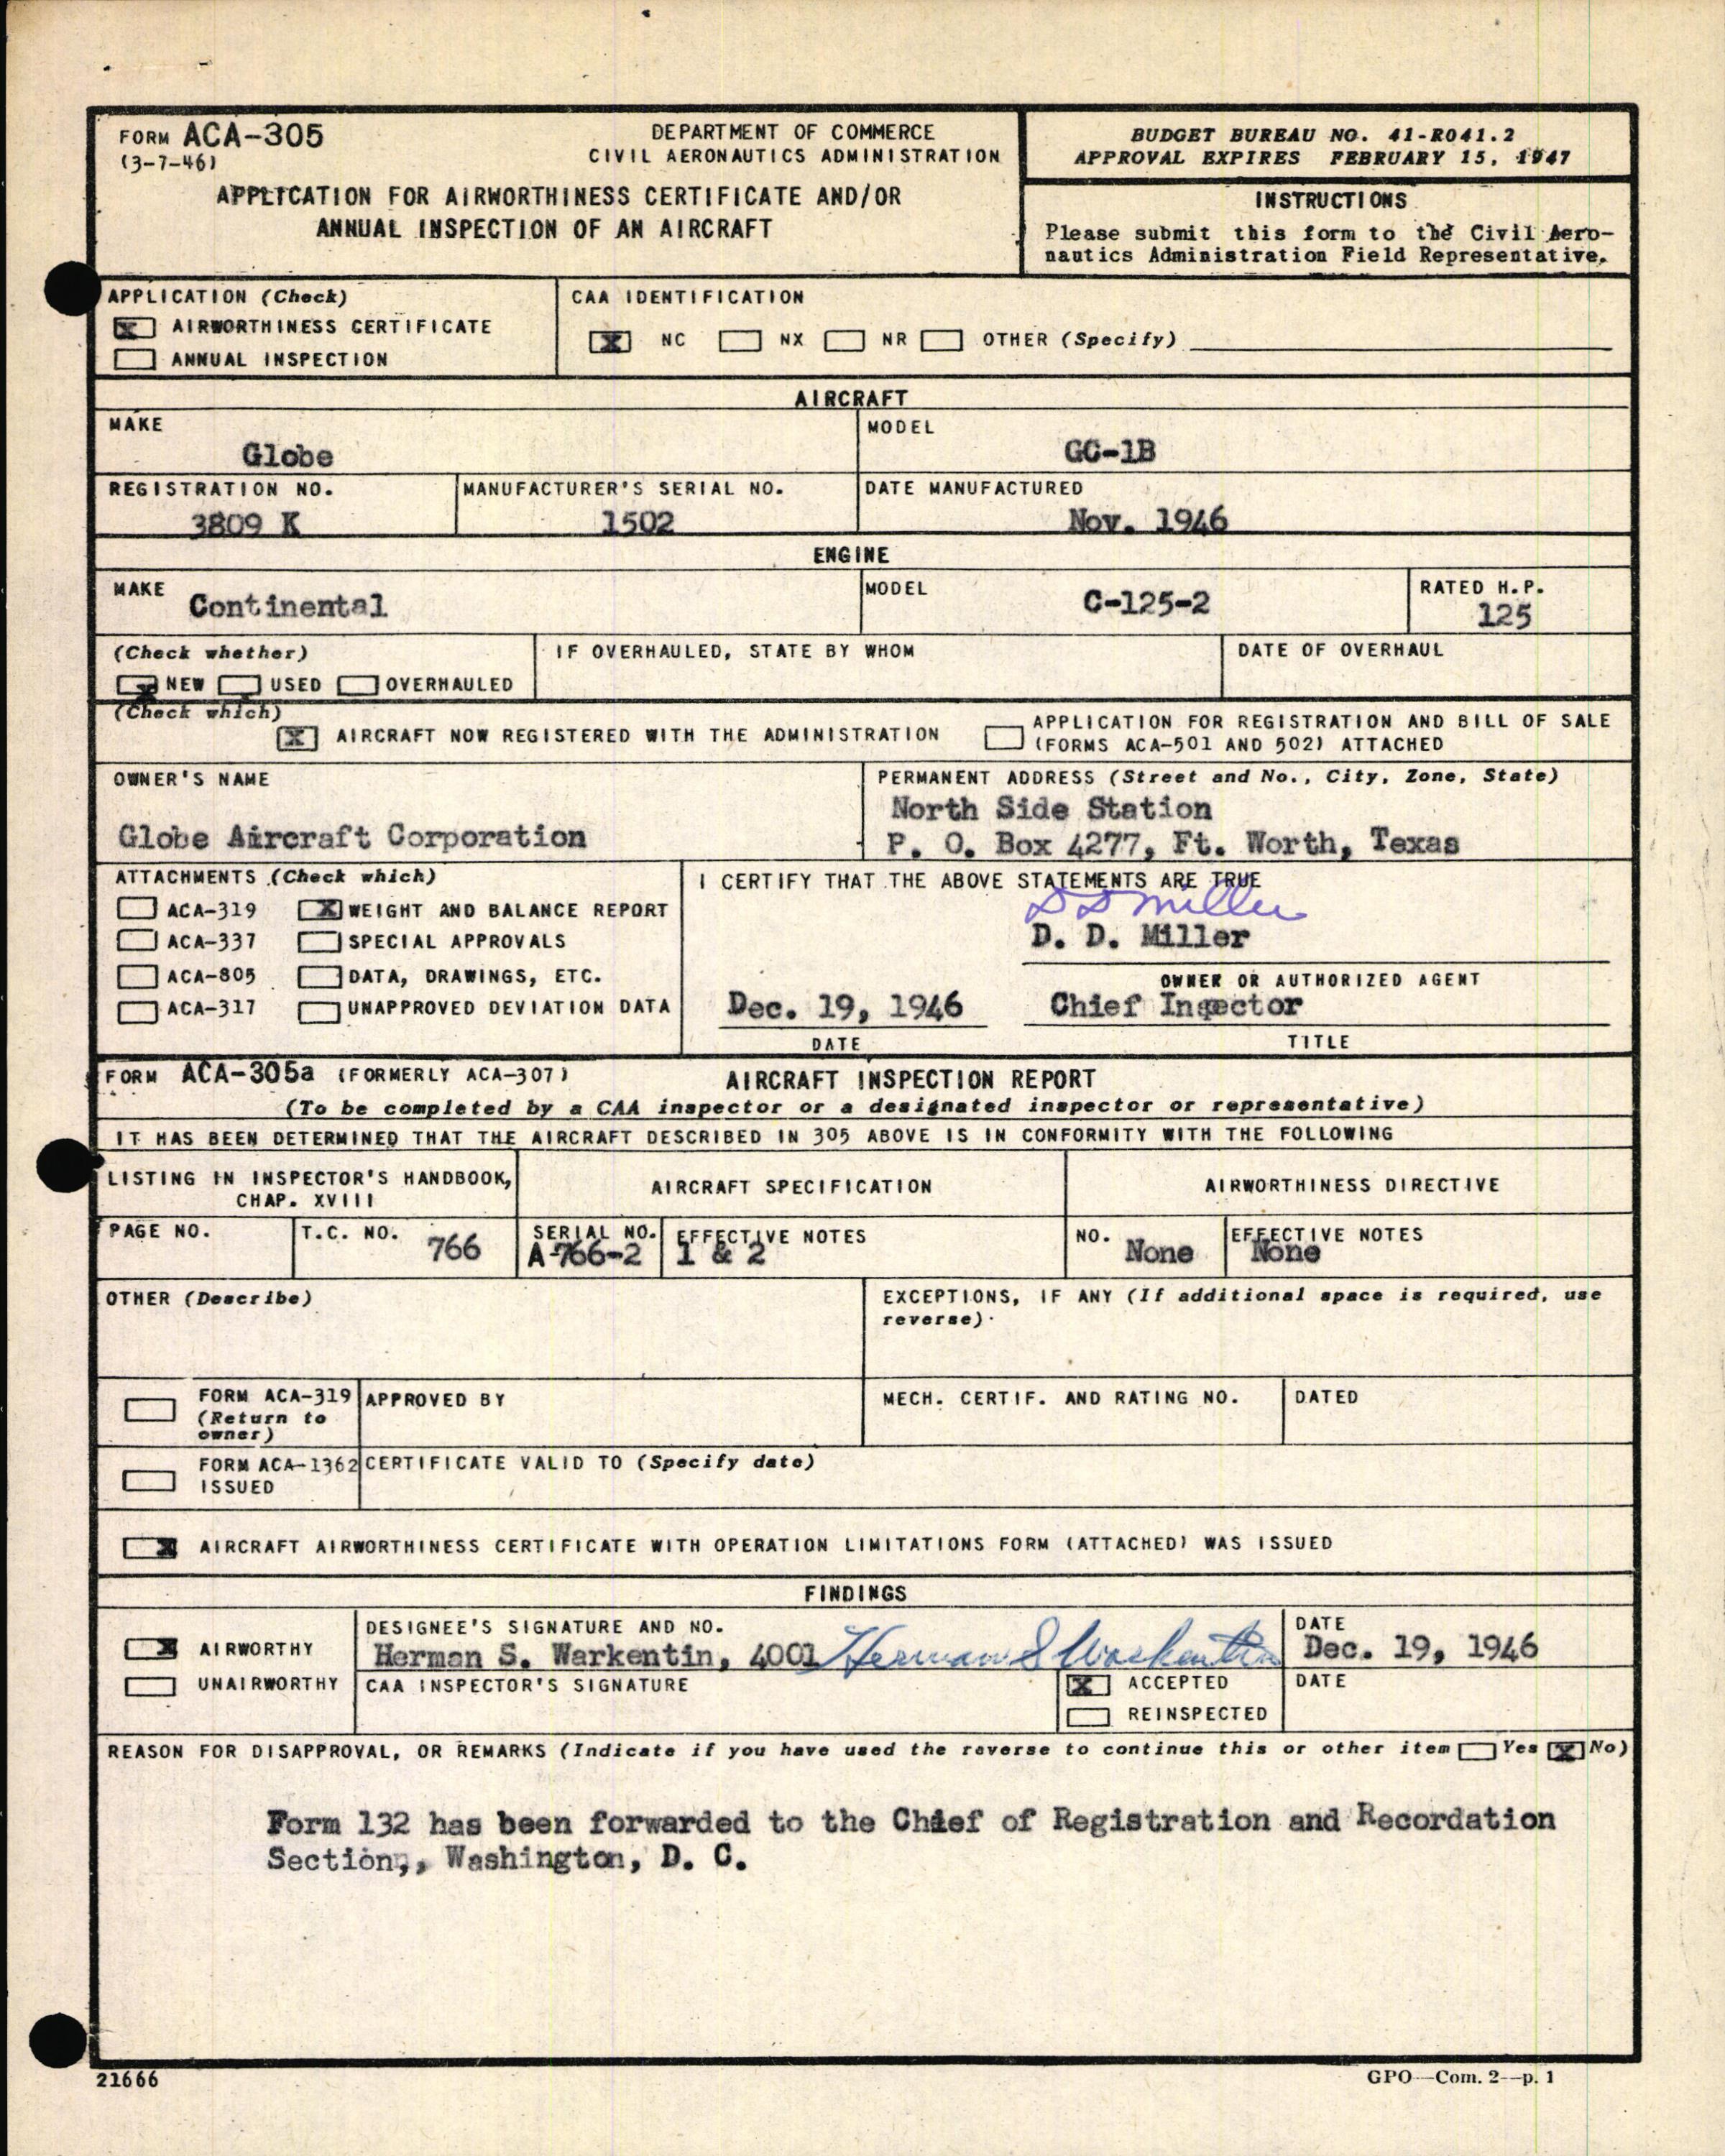 FORM ACA-305
(3-7-46)
DEPARTMENT OF COMMERCE
CIVIL AERONAUTICS ADMINISTRATION
APPLICATION FOR AIRWORTHINESS CERTIFICATE AND/OR
ANNUAL INSPECTION OF AN AIRCRAFT
BUDGET BUREAU NO. 41-R041.2
APPROVAL EXPIRES FEBRUARY 15, 1947
INSTRUCTIONS
Please submit this form to the Civil Aero-
nautics Administration Field Representative.
APPLICATION (Check)
X AIRWORTHINESS CERTIFICATE
ANNUAL INSPECTION
CAA IDENTIFICATION
X NC NX NR OTHER (Specify)
AIRCRAFT
MAKE
Globe
MODEL
GC-1B
REGISTRATION NO.
3809 K
MANUFACTURER'S SERIAL NO.
1502
DATE MANUFACTURED
Nov. 1946
ENGINE
MAKE
Continental
MODEL
C-125-2
RATED H.P.
125
(Check whether)
X NEW USED OVERHAULED
IF OVERHAULED, STATE BY WHOM
DATE OF OVERHAUL
(Check which)
X AIRCRAFT NOW REGISTERED WITH THE ADMINISTRATION
APPLICATION FOR REGISTRATION AND BILL OF SALE
(FORMS ACA-501 AND 502) ATTACHED
OWNER'S NAME
Globe Aircraft Corporation
PERMANENT ADDRESS (Street and No., City, Zone, State)
North Side Station
P. O. Box 4277, Ft. Worth, Texas
ATTACHMENTS (Check which)
ACA-319 X WEIGHT AND BALANCE REPORT
ACA-337 SPECIAL APPROVALS
ACA-805 DATA, DRAWINGS, ETC.
ACA-317 UNAPPROVED DEVIATION DATA
I CERTIFY THAT THE ABOVE STATEMENTS ARE TRUE
D D Miller
D. D. Miller
OWNER OR AUTHORIZED AGENT
Dec. 19, 1946 Chief Inspector
DATE TITLE
FORM ACA-305a (FORMERLY ACA-307) AIRCRAFT INSPECTION REPORT
(To be completed by a CAA inspector or a designated inspector or representative)
IT HAS BEEN DETERMINED THAT THE AIRCRAFT DESCRIBED IN 305 ABOVE IS IN CONFORMITY WITH THE FOLLOWING
LISTING IN INSPECTOR'S HANDBOOK,
CHAP. XVIII
AIRCRAFT SPECIFICATION
AIRWORTHINESS DIRECTIVE
PAGE NO.
T.C. NO. 766
SERIAL NO.
A-766-2
EFFECTIVE NOTES
1 & 2
NO. None
EFFECTIVE NOTES
None
OTHER (Describe)
EXCEPTIONS, IF ANY (If additional space is required, use
reverse).
FORM ACA-319
(Return to
owner)
APPROVED BY
MECH. CERTIF. AND RATING NO.
DATED
FORM ACA-1362
ISSUED
CERTIFICATE VALID TO (Specify date)
X AIRCRAFT AIRWORTHINESS CERTIFICATE WITH OPERATION LIMITATIONS FORM (ATTACHED) WAS ISSUED
FINDINGS
X AIRWORTHY
UNAIRWORTHY
DESIGNEE'S SIGNATURE AND NO.
Herman S. Warkentin, 4001 Herman S Warkentin
DATE
Dec. 19, 1946
CAA INSPECTOR'S SIGNATURE
X ACCEPTED
REINSPECTED
DATE
REASON FOR DISAPPROVAL, OR REMARKS (Indicate if you have used the reverse to continue this or other item Yes X No)
Form 132 has been forwarded to the Chief of Registration and Recordation
Section,, Washington, D. C.
21666
GPO—Com. 2—p. 1